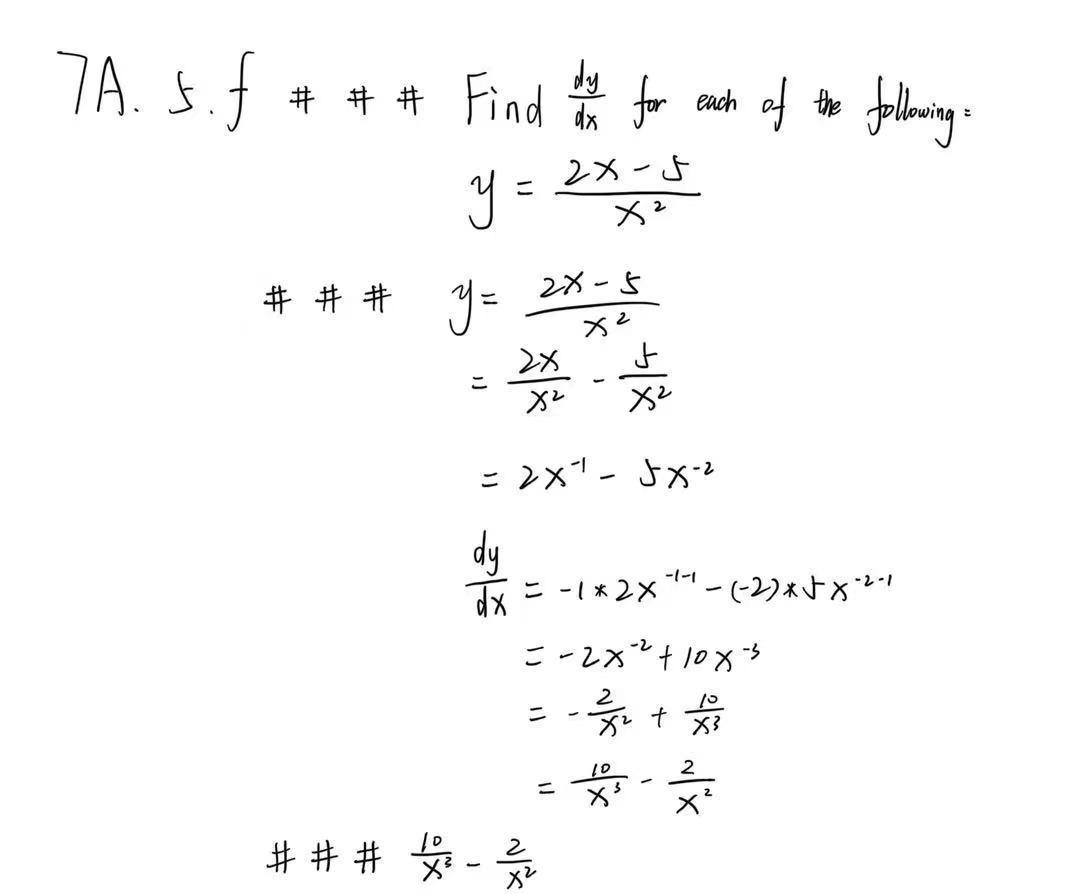 7A. 5. f # # # Find dy/dx for each of the following:
y = (2x - 5)/x²
# # # y = (2x - 5)/x²
= 2x/x² - 5/x²
= 2x⁻¹ - 5x⁻²
dy/dx = -1 * 2x⁻¹⁻¹ - (-2) * 5x⁻²⁻¹
= -2x⁻² + 10x⁻³
= -2/x² + 10/x³
= 10/x³ - 2/x²
# # # 10/x³ - 2/x²